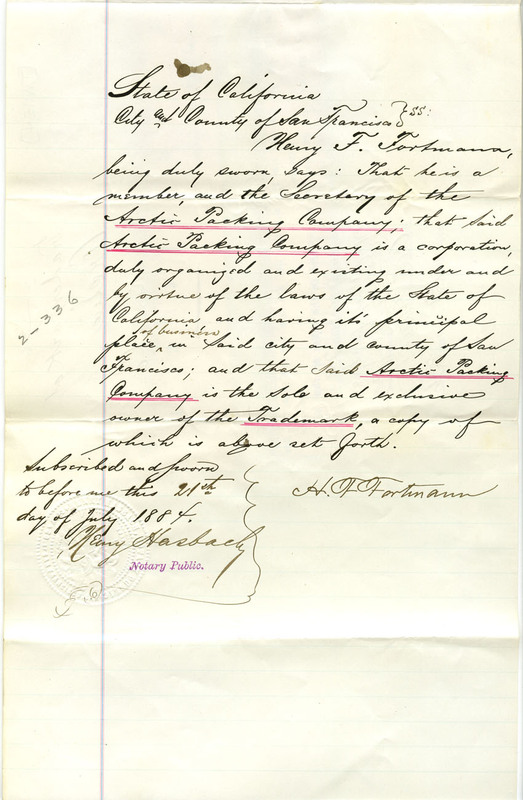 State of California
City and County of San Francisco } ss:
Henry F. Fortmann,
being duly sworn, says: That he is a
member, and the Secretary of the
Arctic Packing Company: that said
Arctic Packing Company is a corporation,
duly organized and existing under and
by virtue of the laws of the State of
California and having it's principal
place of business in said city and county of San
Francisco; and that said Arctic Packing
Company is the sole and exclusive
owner of the Trademark, a copy of
which is above set forth.
2-336
Subscribed and sworn
to before me this 21st
day of July 1884.
H. F. Fortmann
Henry Hasbach
Notary Public.